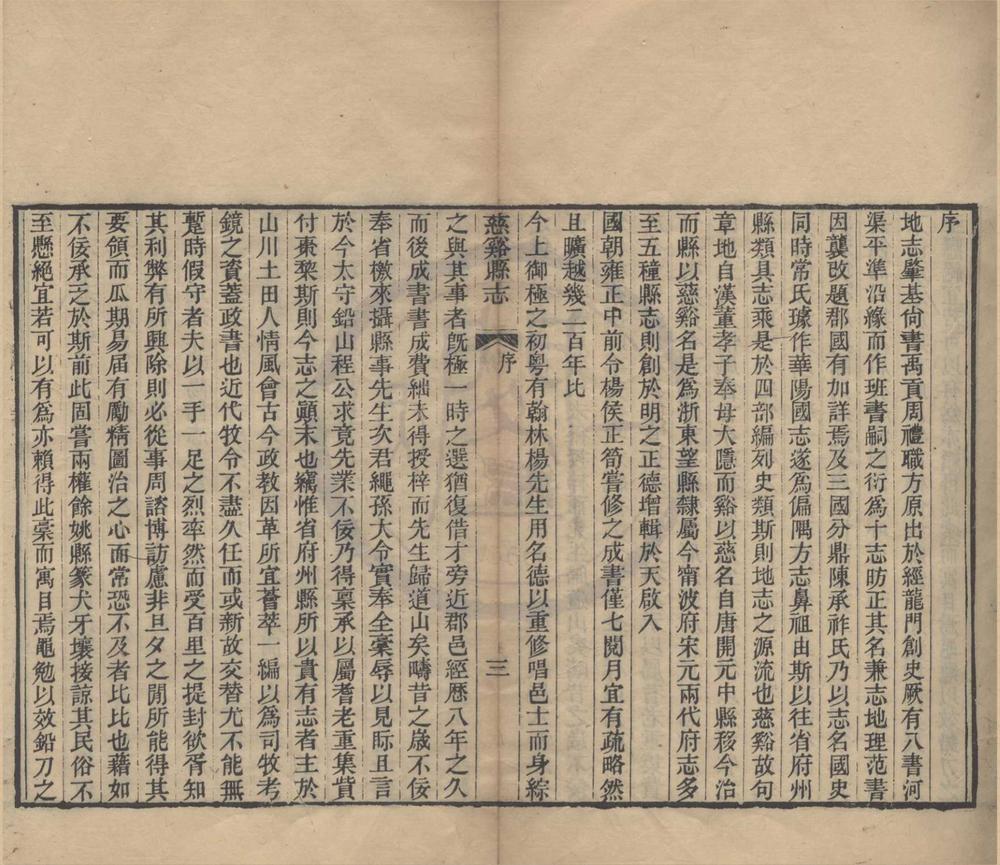 序
地志肇基尙書禹貢周禮職方原出於經龍門創史厥有八書河
渠平準沿緣而作班書嗣之衍爲十志昉正其名兼志地理范書
因襲改題郡國有加詳焉及三國分鼎陳承祚氏乃以志名國史
同時常氏璩作華陽國志遂爲偏隅方志鼻祖由斯以往省府州
縣類具志乘是於四部編列史類斯則地志之源流也慈谿故句
章地自漢董孝子奉母大隱而谿以慈名自唐開元中縣移今治
而縣以慈谿名是爲浙東望縣隸屬今甯波府宋元兩代府志多
至五種縣志則創於明之正德增輯於天啟入
國朝雍正中前令楊侯正筍嘗修之成書僅七閱月宜有疏略然
且曠越幾二百年比
今上御極之初粤有翰林楊先生用名德以重修唱邑士而身綜
慈谿縣志
序
三
之與其事者旣極一時之選猶復借才旁近郡邑經歷八年之久
而後成書書成費絀未得授梓而先生歸道山矣疇昔之歲不佞
奉省檄來攝縣事先生次君繩孫大令實奉全稾辱以見眎且言
於今太守鉛山程公求竟先業不佞乃得稟承以屬耆老重集貲
付棗棃斯則今志之顚末也竊惟省府州縣所以貴有志者主於
山川土田人情風會古今政敎因革所宜薈萃一編以爲司牧考
鏡之資蓋政書也近代牧令不盡久任而或新故交替尤不能無
蹔時假守者夫以一手一足之烈率然而受百里之提封欲胥知
其利弊有所興除則必從事周諮博訪慮非旦夕之閒所能得其
要領而瓜期易屆有勵精圖治之心而常恐不及者比比也藉如
不佞承乏於斯前此固嘗兩權餘姚縣篆犬牙壤接諒其民俗不
至懸絕宜若可以有爲亦賴得此稾而寓目焉黽勉以效鉛刀之